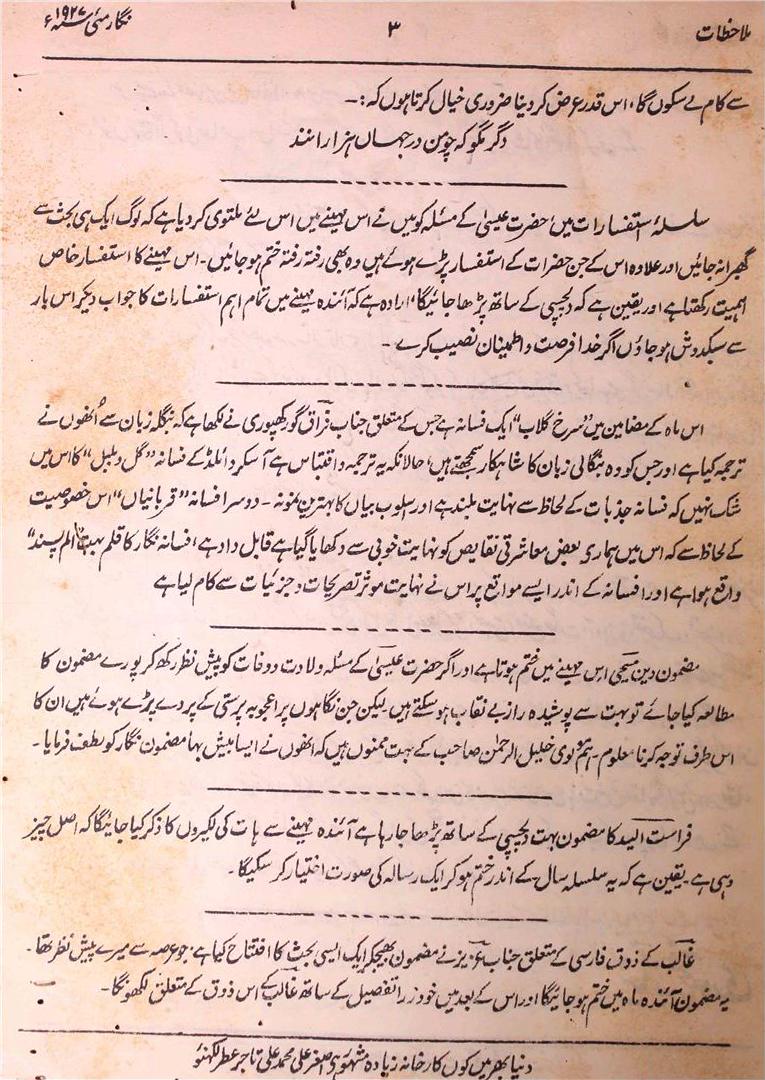 ملاحظات ۳ نگار مئی سنہ ۱۹۲۷ء
سے کام لے سکوں گا، اس قدر عرض کر دینا ضروری خیال کرتا ہوں کہ :۔
دگر مگو کہ چومن در جہاں ہزار انند
سلسلۂ استفسارات میں، حضرت عیسیٰ کے مسئلہ کو میں نے اس مہینے میں اس لئے ملتوی کر دیا ہے کہ لوگ ایک ہی بحث سے
گھبرا نہ جائیں اور علاوہ اس کے جن حضرات کے استفسار پڑے ہوئے ہیں وہ بھی رفتہ رفتہ ختم ہو جائیں۔ اس مہینے کا استفسار خاص
اہمیت رکھتا ہے اور یقین ہے کہ دلچسپی کے ساتھ پڑھا جائیگا، ارادہ ہے کہ آئندہ مہینے میں تمام اہم استفسارات کا جواب دیکر اس بار
سے سبکدوش ہو جاؤں اگر خدا فرصت و اطمینان نصیب کرے ۔
اس ماہ کے مضامین میں ”سرخ گلاب“ ایک فسانہ ہے جس کے متعلق جناب فراق گورکھپوری نے لکھا ہے کہ بنگلہ زبان سے اُنھوں نے
ترجمہ کیا ہے اور جس کو وہ بنگالی زبان کا شاہکار سمجھتے ہیں، حالانکہ یہ ترجمہ و اقتباس ہے آسکر وائلڈ کے فسانہ ”گل و بلبل“ کا اس میں
شک نہیں کہ فسانہ جذبات کے لحاظ سے نہایت بلند ہے اور اسلوب بیاں کا بہترین نمونہ ۔ دوسرا فسانہ ”قربانیاں“ اس خصوصیت
کے لحاظ سے کہ اس میں ہماری بعض معاشرتی نقایص کو نہایت خوبی سے دکھایا گیا ہے قابل داد ہے، فسانہ نگار کا قلم بہت ”الم پسند“
واقع ہوا ہے اور افسانہ کے اندر ایسے مواقع پر اس نے نہایت موثر تصریحات و جزئیات سے کام لیا ہے
مضمون دین مسیحی اس مہینے میں ختم ہوتا ہے اور اگر حضرت عیسیٰ کے مسئلہ ولادت و وفات کو پیش نظر رکھ کر پورے مضمون کا
مطالعہ کیا جائے تو بہت سے پوشیدہ راز بے نقاب ہو سکتے ہیں۔ لیکن جن نگاہوں پر اعجوبہ پرستی کے پردے پڑے ہوئے ہیں ان کا
اس طرف توجہ کرنا معلوم۔ ہم مولوی خلیل الرحمٰن صاحب کے بہت ممنوں ہیں کہ انھوں نے ایسا بیش بہا مضمون نگار کو لطف فرمایا ۔
فراست الید کا مضمون بہت دلچسپی کے ساتھ پڑھا جا رہا ہے آئندہ مہینے سے ہات کی لکیروں کا ذکر کیا جائیگا کہ اصل چیز
وہی ہے۔ یقین ہے کہ یہ سلسلہ سال کے اندر ختم ہو کر ایک رسالہ کی صورت اختیار کر سکیگا۔
غالب کے ذوق فارسی کے متعلق جناب عزیز نے مضمون بھیجکر ایک ایسی بحث کا افتتاح کیا ہے، جو عرصہ سے میرے پیش نظر تھا۔
یہ مضمون آئندہ ماہ میں ختم ہو جائیگا اور اس کے بعد میں خود ذرا تفصیل کے ساتھ غالب کے اس ذوق کے متعلق لکھونگا۔
دنیا بھر میں کون کارخانہ زیادہ مشہور ہے اصغر علی محمد علی تاجر عطر لکھنؤ